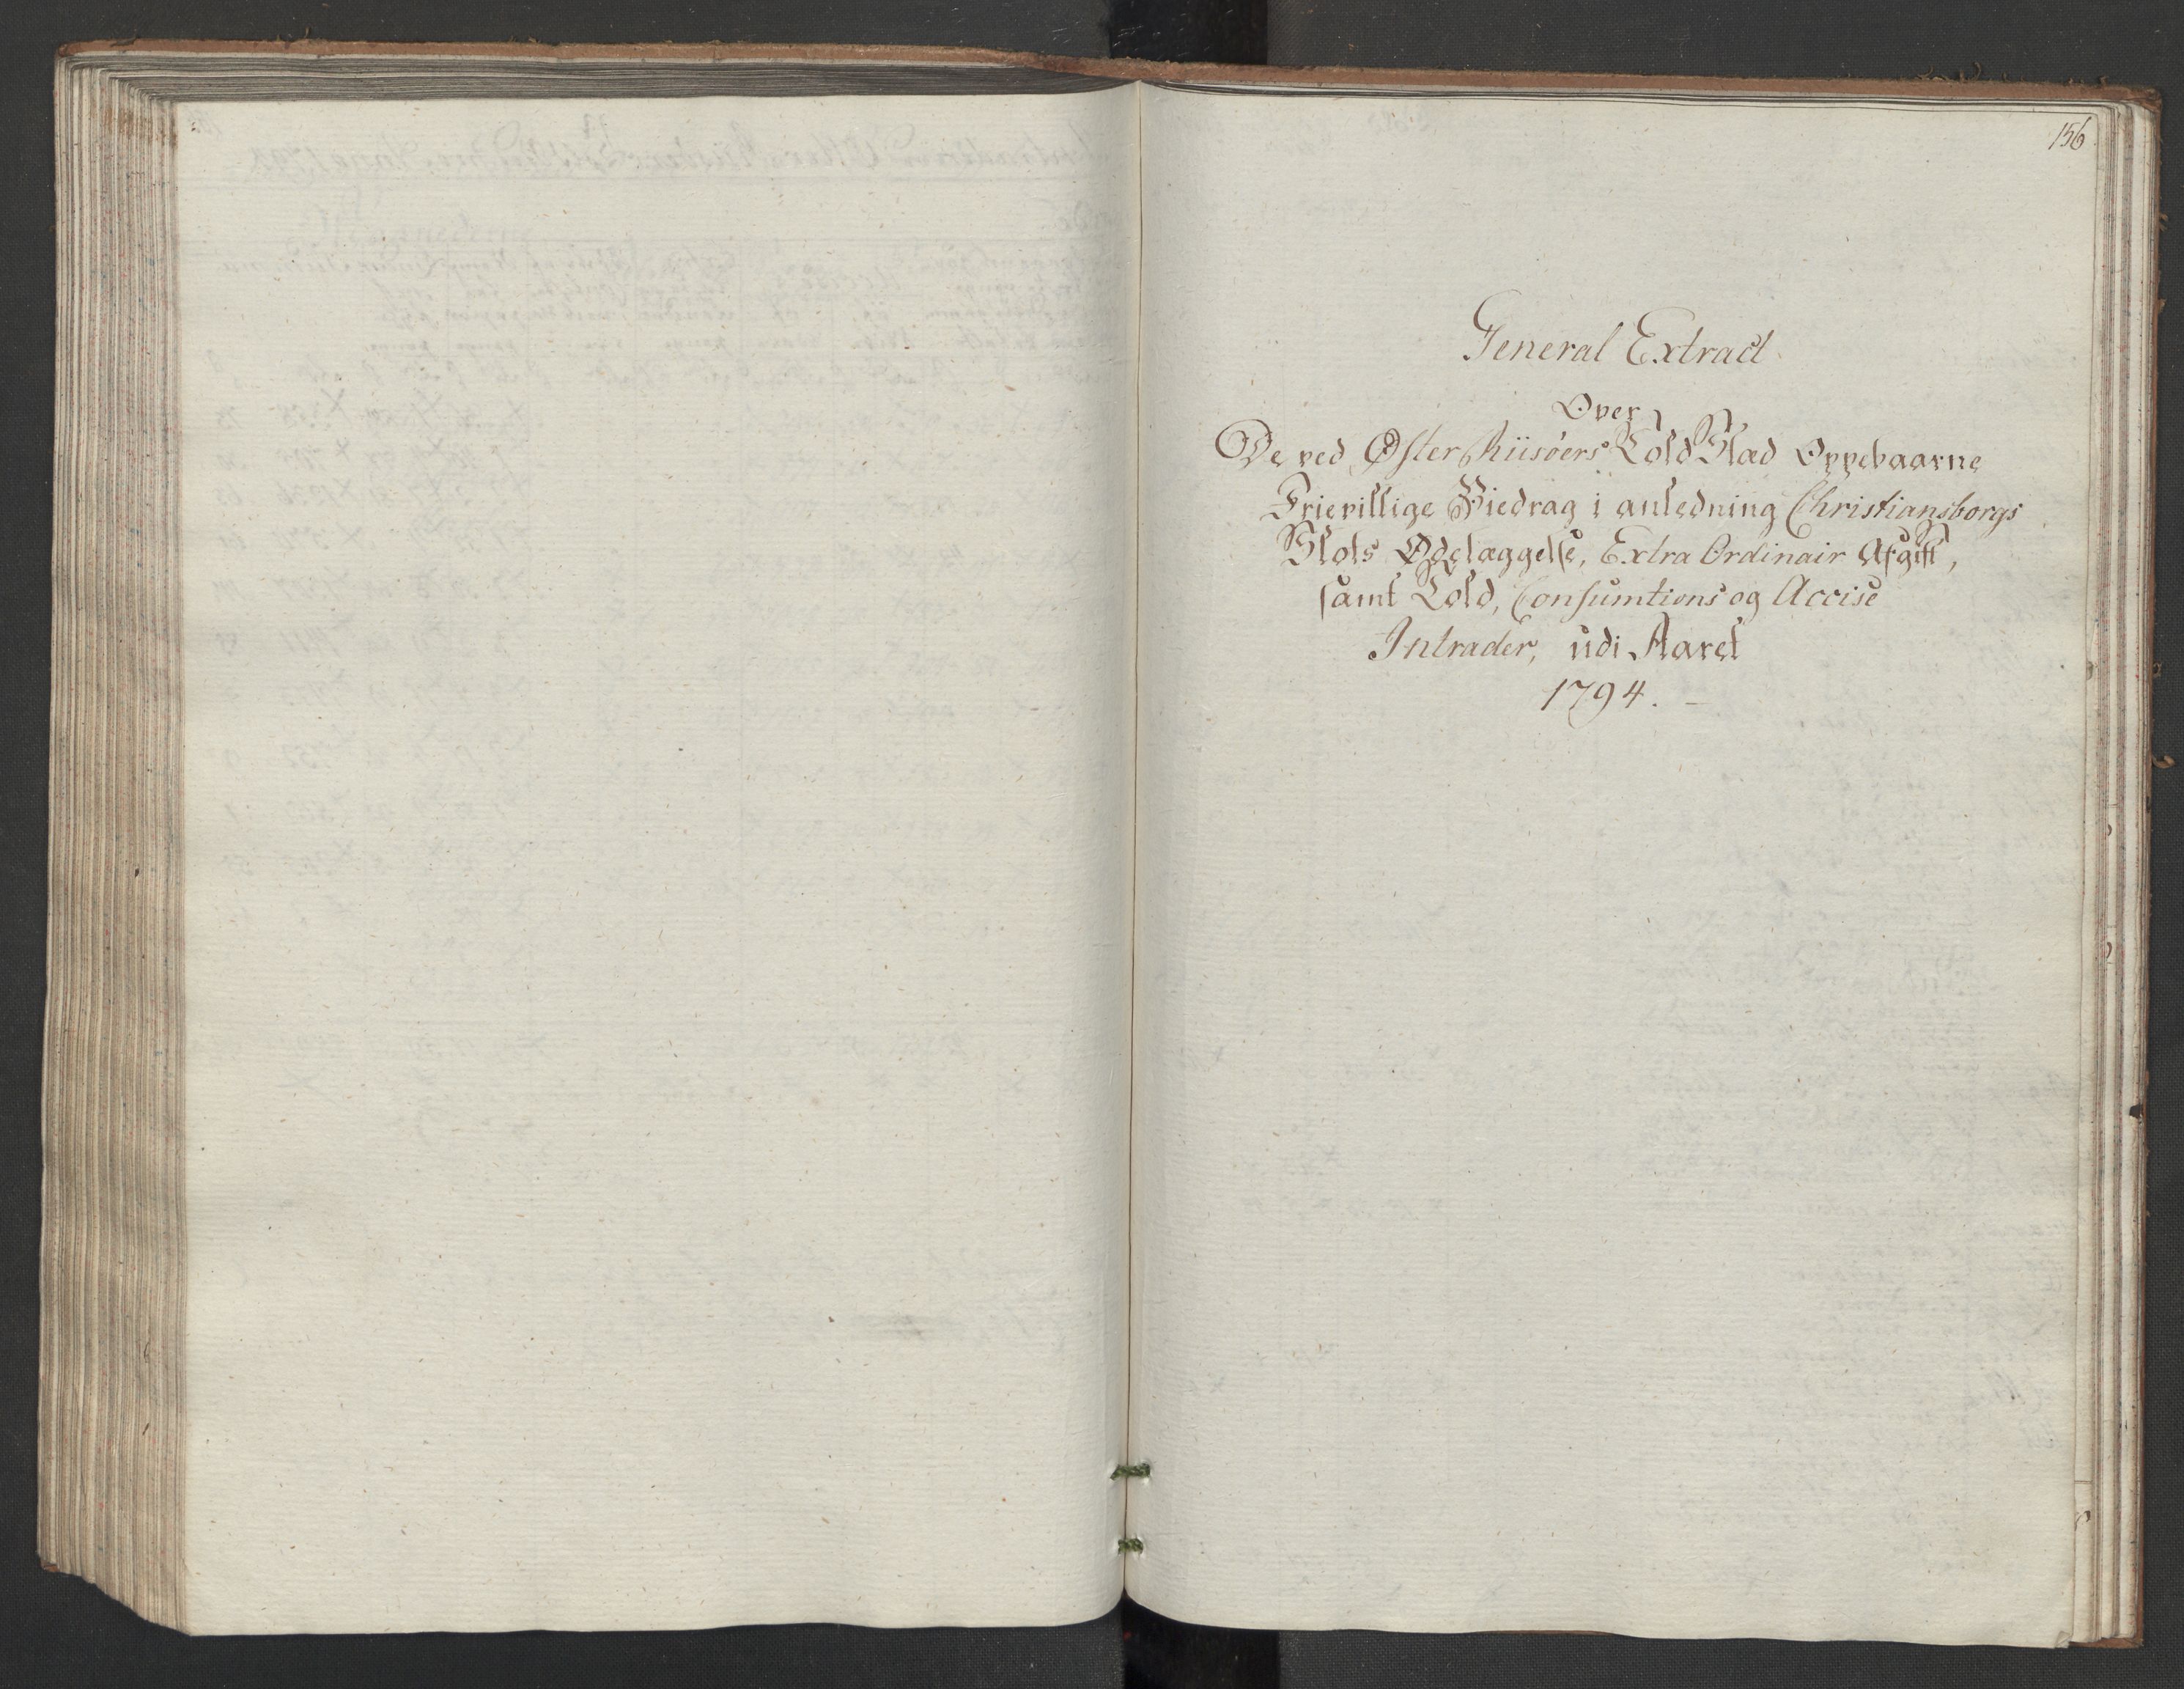 156
General Extract
Over
De ved Øster Riisöers Told Stæd Oppebaarne
Frievillige Biedrag i anledning Christiansborgs
Slots Ödelæggelse, Extra Ordinair Afgift,
samt Told, Consumtions og Accise
Intrader, udi Aaret
1794. –